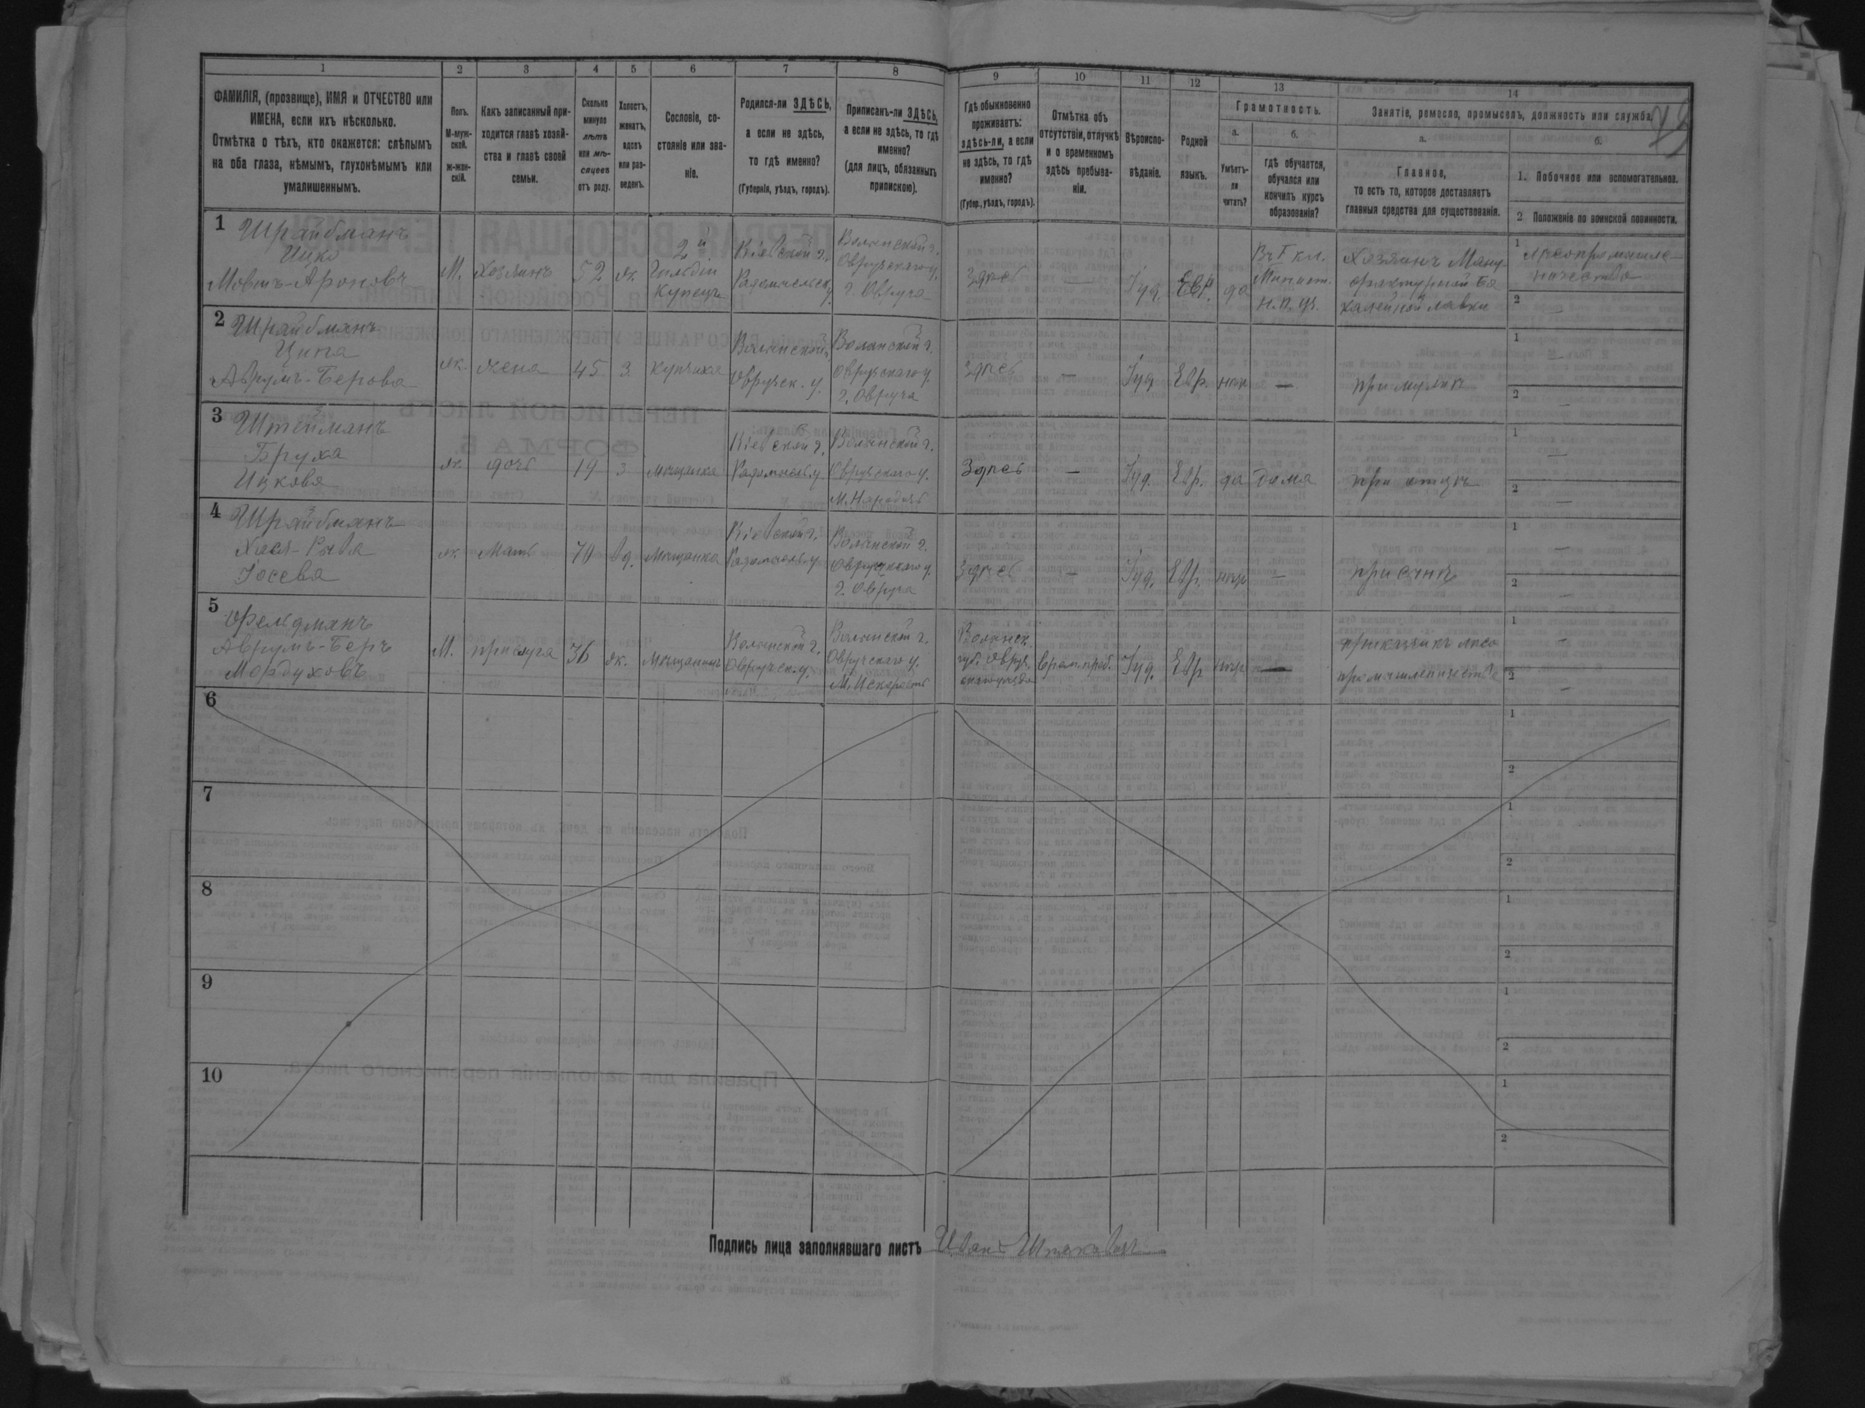 1 2 3 4 5 6 7 8 9 10 11 12 13 14
ФАМИЛІЯ, (прозвище), ИМЯ и ОТЧЕСТВО или
ИМЕНА, если ихъ нѣсколько.
Отмѣтка о тѣхъ, кто окажется: слѣпымъ
на оба глаза, нѣмымъ, глухонѣмымъ или
умалишеннымъ.
Полъ.
М-муж-
ской.
ж-жен-
скій.
Какъ записанный при-
ходится главѣ хозяй-
ства и главѣ своей
семьи.
Сколько
минуло
лѣтъ
или мѣ-
сяцевъ
отъ роду.
Холостъ,
женатъ,
вдовъ
или раз-
веденъ.
Сословіе, со-
стояніе или зва-
ніе.
Родился-ли ЗДѢСЬ,
а если не здѣсь,
то гдѣ именно?
(Губернія, уѣздъ, городъ).
Приписанъ-ли ЗДѢСЬ,
а если не здѣсь, то гдѣ
именно?
(для лицъ, обязанныхъ
припискою).
Гдѣ обыкновенно
проживаетъ:
здѣсь-ли, а если
не здѣсь, то гдѣ
именно?
(Губер., уѣздъ, городъ).
Отмѣтка объ
отсутствіи, отлучкѣ
и о временномъ
здѣсь пребыва-
ніи.
Вѣроиспо-
вѣданіе.
Родной
языкъ.
Грамотность.
а.
Умѣетъ-
ли
читать?
б.
гдѣ обучается,
обучался или
кончилъ курсъ
образованія?
Занятіе, ремесло, промыселъ, должность или служба.
а.
Главное,
то есть то, которое доставляетъ
главныя средства для существованія.
б.
1. Побочное или вспомогательное.
2 Положеніе по воинской повинности.
1
Шрайбманъ
Ицко
Мовшъ-Ароновъ
М.
Хозяинъ
52
ж.
2й
Гильдіи
Купецъ
Кіевской г.
Радомысльск. у.
Волынской г.
Овручскаго у.
г. Овруча
Здѣсь
—
Іуд.
Евр.
да
Хозяинъ Ману-
фактурной Ба
калейной лавки
1 Лѣсопромышле-
ничество
2 —
2
Шрайбманъ
Ципа
Аврумъ-Берова
ж.
жена
45
З.
купчиха
Волынской г.
Овручск. у.
Волынской г.
Овручскаго у.
г. Овруча
Здѣсь
—
Іуд.
Евр.
нѣтъ
—
при мужѣ
1 —
2 —
3
Штейманъ
Бруха
Ицкова
ж.
дочь
19
З.
мѣщанка
Кіевской г.
Радомысльск. у.
Волынской г.
Овручскаго у.
М. Народичъ
Здѣсь
—
Іуд.
Евр.
да
дома
при отцѣ
1 —
2 —
4
Шрайбманъ
Хася-Рыва
Іосева
ж.
мать
70
вд.
Мѣщанка
Кіевской г.
Радомысльск. у.
Волынской г.
Овручскаго у.
г. Овруча
Здѣсь
—
Іуд.
Евр.
нѣтъ
—
при сынѣ
1 —
2 —
5
Фельдманъ
Аврумъ-Беръ
Мордуховъ
М.
прислуга
36
ж.
Мѣщанинъ
Волынской г.
Овручск. у.
Волынской г.
Овручскаго у.
М. Искорость
Волынск.
губ. Овруч.
скаго уѣзда
врем. преб.
Іуд.
Евр.
нѣтъ
—
прикащикъ лѣсо
промышленничества
1 —
2 —
6
1
2
7
1
2
8
1
2
9
1
2
10
1
2
Подпись лица заполнявшаго листъ Иванъ